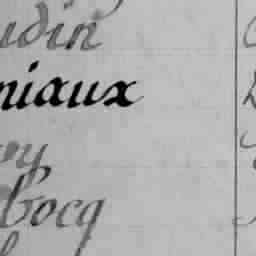 udin
niaux
vy
bocq